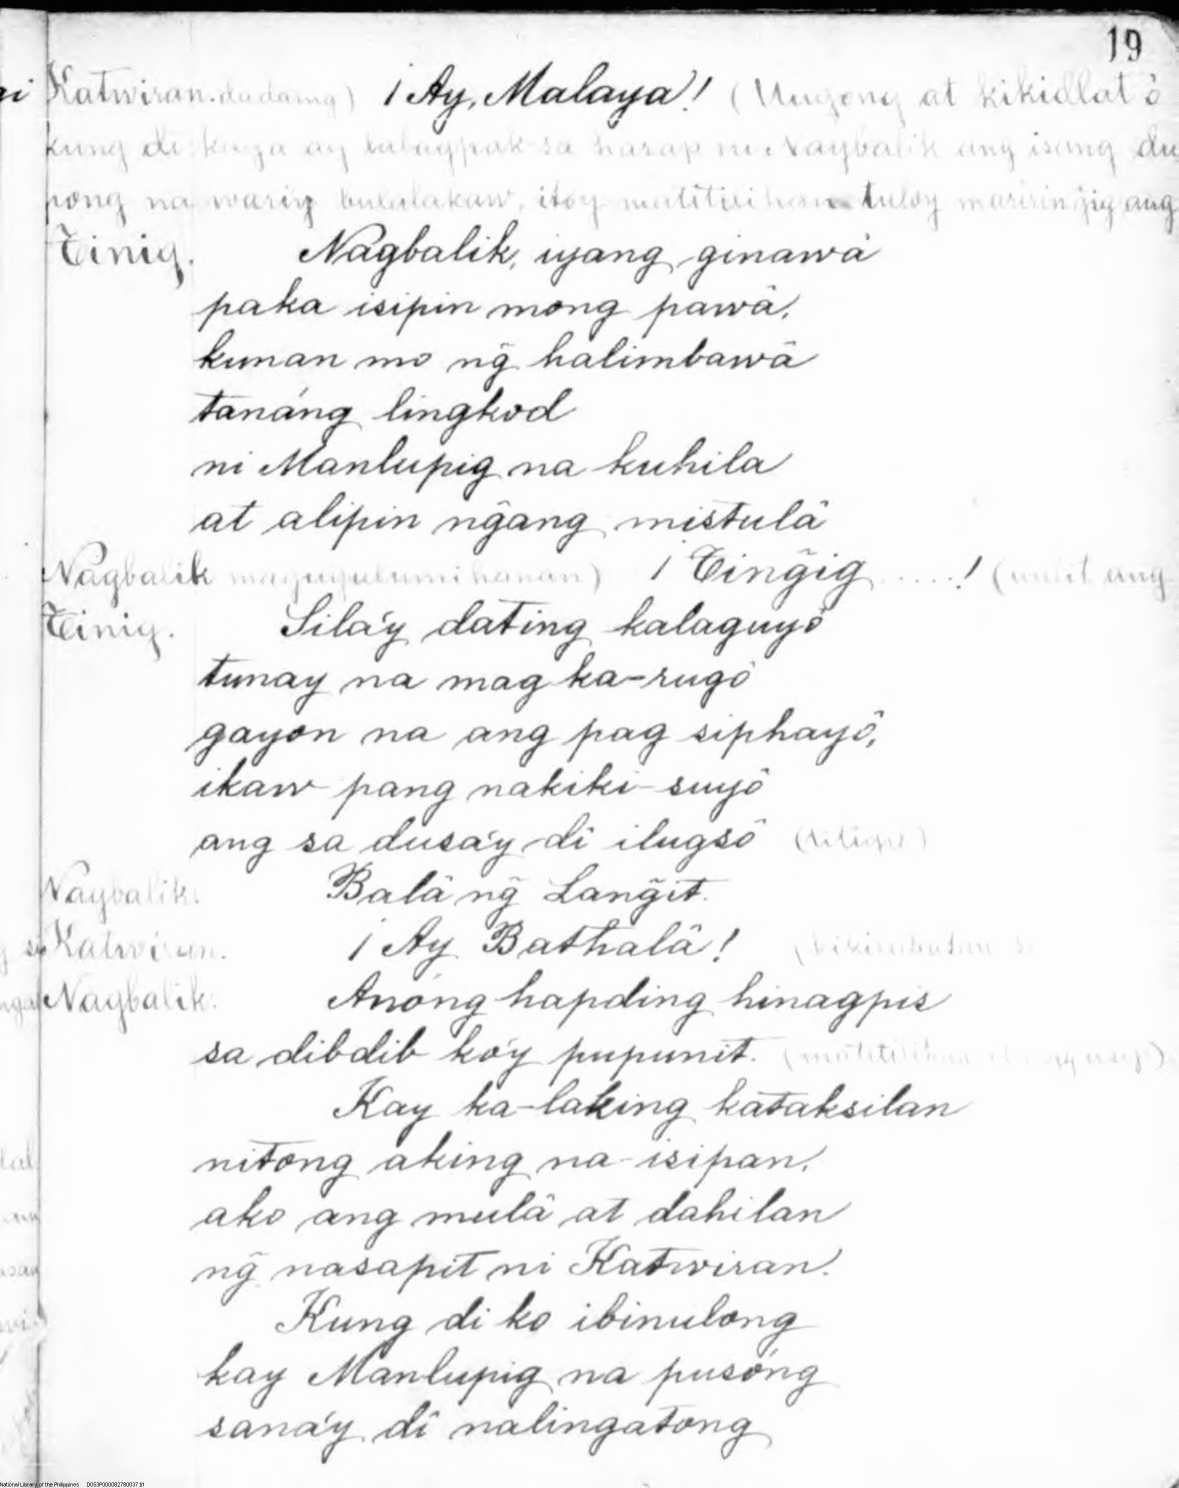 19
Katwiran. dadaing) ¡Ay, Malaya! (Uugong at kikidlat ó
kung di kaya ay babagpak sa harap ni Nagbalik ang isang du
pong na wari'y bulalakaw, ito'y matitilihan tuloy maririnĝig ang
Tinig. Nagbalik, iyang ginawâ
paka isipin mong pawâ,
kunan mo nĝ halimbawâ
tanáng lingkod
ni Manlupig na kuhila
at alipin nĝang mistulâ
Nagbalik maguguluminanan) ¡Tinĝig.....! (uulit ang
Tinig. Sila'y dating kalaguyô
tunay na mag ka-rugô
gayon na ang pag siphayô,
ikaw pang nakiki-suyô
ang sa dusa'y di ilugsô
Nagbalik. Balâ nĝ Lanĝit.
Katwiran. ¡Ay Bathalâ!
Nagbalik. Anóng hapding hinagpis
sa dibdib ko'y pupunit.
Kay ka-laking kataksilan
nitong aking na-isipan,
ako ang mulâ at dahilan
nĝ nasapit ni Katwiran.
Kung di ko ibinulong
kay Manlupig na pusóng
sana'y dî nalingatong
National Library of the Philippines